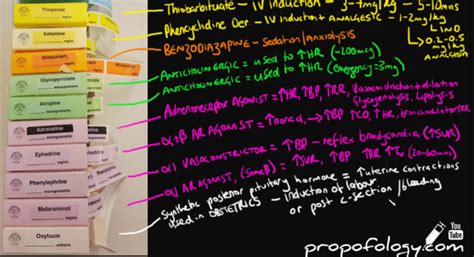 Thiopental
mg/mL
Thiobarbiturate - IV induction - 3-7mg/kg - 5-10mins
Ketamine
mg/mL
Phencyclidine Der - IV induction + ANALGESIC - 1-2mg/kg
Midazolam
BENZODIAZAPINE - Sedation/anxiolysis
↳ IN0
0.2-0.5
mg/kg
Glycopyrrolate
micrograms/mL
ANTICHOLINERGIC = used to ↑HR (~200mcg)
Atropine
micrograms/mL
ANTICHOLINERGIC = used to ↑HR (emergency = 3mg)
Adrenaline
Adrenoreceptor AGONIST = ↑HR, ↑BP, ↑RR, Vasoconstriction + dilation
Glycogenolysis, Lipolysis
Ephedrine
mg/mL
α+β AR AGONIST = ↑norad, → ↑BP ↑CO, ↑HR, bronchodilator
Phenylephrine
micrograms/mL
α1 VASOCONSTRICTOR = ↑BP - reflex bradycardia (↑SVR)
Metaraminol
mg/mL
α1 AR AGONIST, (some β) = ↑SVR, ↑BP (20-60min)
Oxytocin
units/mL
Synthetic posterior pituitary hormone = ↑uterine contractions
used in OBSTETRICS - induction of labour
or post c-section/bleeding
You
Tube
propofology.com